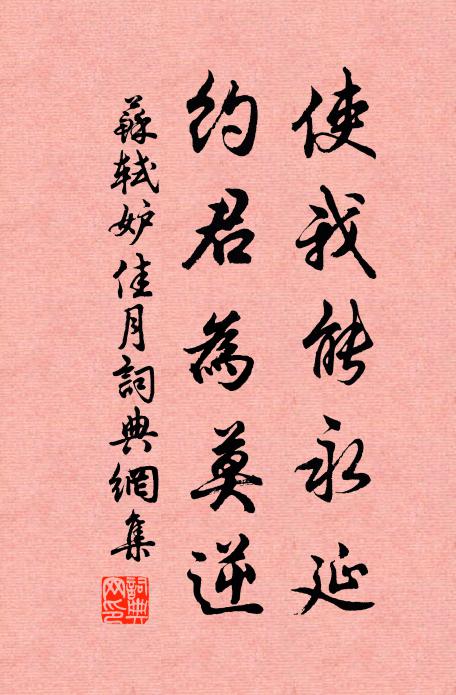 使我能永延
約君為莫逆
蘇軾妒佳月詞典網集
詞典网印